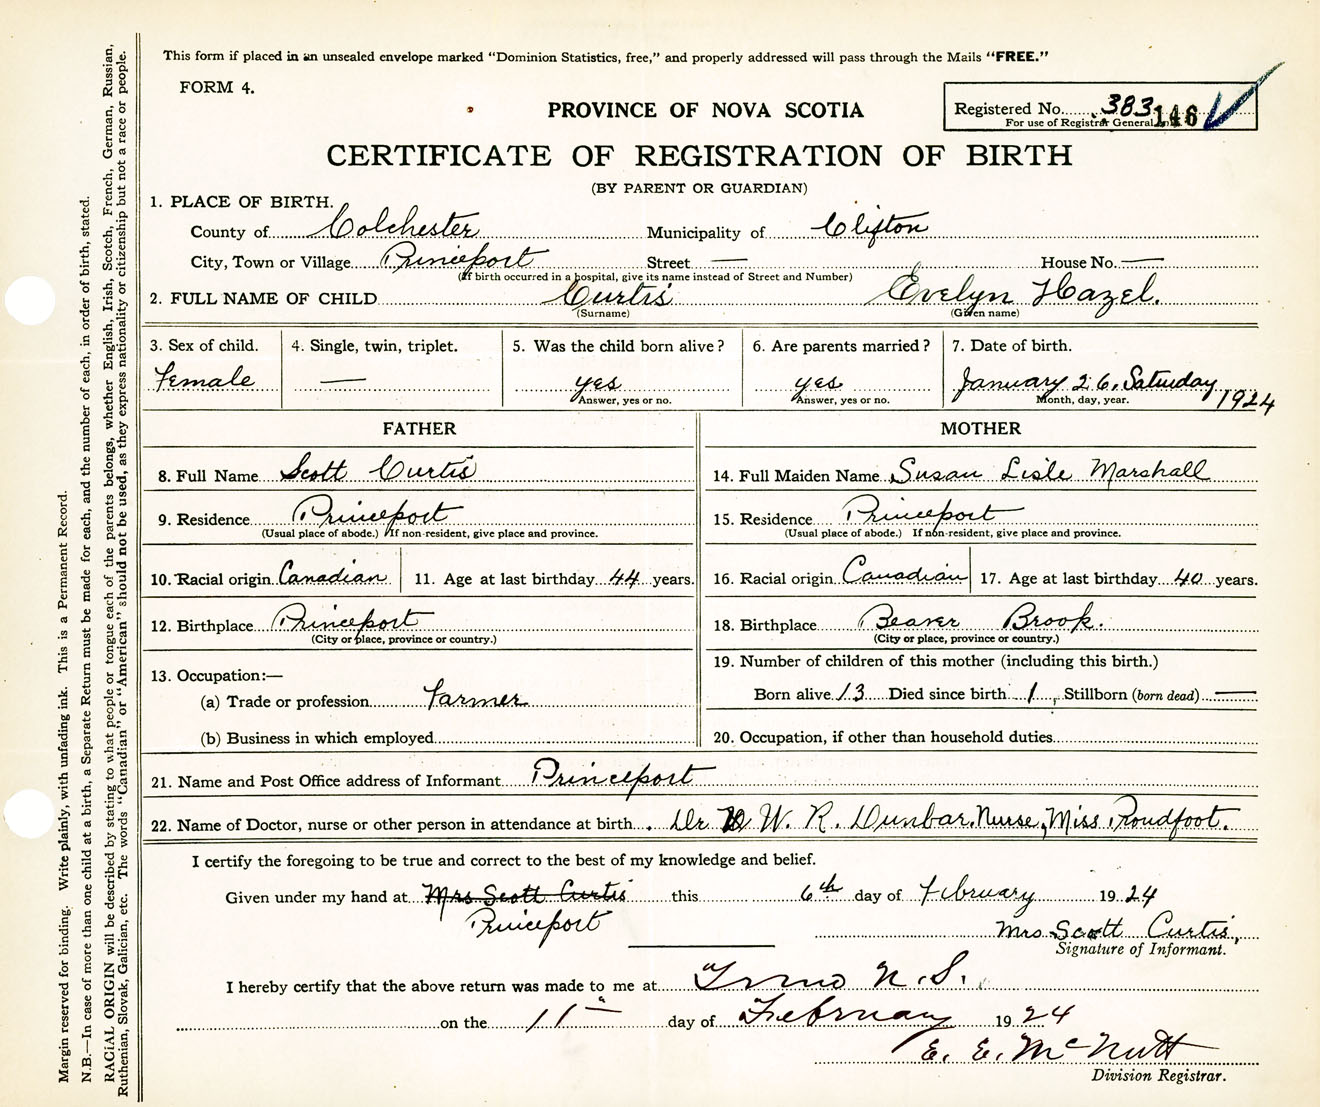 This form if placed in an unsealed envelope marked "Dominion Statistics, free," and properly addressed will pass through the Mails "FREE."
FORM 4.
PROVINCE OF NOVA SCOTIA
Registered No. 383 146
For use of Registrar General
CERTIFICATE OF REGISTRATION OF BIRTH
(BY PARENT OR GUARDIAN)
1. PLACE OF BIRTH.
County of Colchester Municipality of Clifton
City, Town or Village Princeport Street — House No. —
(If birth occurred in a hospital, give its name instead of Street and Number)
2. FULL NAME OF CHILD Curtis Evelyn Hazel.
(Surname) (Given name)
3. Sex of child. 4. Single, twin, triplet. 5. Was the child born alive? 6. Are parents married? 7. Date of birth.
Female — yes yes January 26, Saturday 1924
Answer, yes or no. Answer, yes or no. Month, day, year.
FATHER MOTHER
8. Full Name Scott Curtis 14. Full Maiden Name Susan Lisle Marshall
9. Residence Princeport 15. Residence Princeport
(Usual place of abode.) If non-resident, give place and province. (Usual place of abode.) If non-resident, give place and province.
10. Racial origin Canadian 11. Age at last birthday 44 years. 16. Racial origin Canadian 17. Age at last birthday 40 years.
12. Birthplace Princeport 18. Birthplace Beaver Brook.
(City or place, province or country.) (City or place, province or country.)
13. Occupation:— 19. Number of children of this mother (including this birth.)
(a) Trade or profession Farmer Born alive 13 Died since birth 1, Stillborn (born dead) —
(b) Business in which employed 20. Occupation, if other than household duties
21. Name and Post Office address of Informant Princeport
22. Name of Doctor, nurse or other person in attendance at birth. Dr W. R. Dunbar. Nurse, Miss Proudfoot.
I certify the foregoing to be true and correct to the best of my knowledge and belief.
Given under my hand at Mrs Scott Curtis this 6th day of February 1924
Princeport Mrs Scott Curtis,
Signature of Informant.
I hereby certify that the above return was made to me at Truro N.S.
on the 11 day of February 1924
E. E. McNutt
Division Registrar.
Margin reserved for binding. Write plainly, with unfading ink. This is a Permanent Record.
N.B.—In case of more than one child at a birth, a Separate Return must be made for each, and the number of each, in order of birth, stated.
RACIAL ORIGIN will be described by stating to what people or tongue each of the parents belongs, whether English, Irish, Scotch, French, German, Russian,
Ruthenian, Slovak, Galician, etc. The words "Canadian" or "American" should not be used, as they express nationality or citizenship but not a race or people.